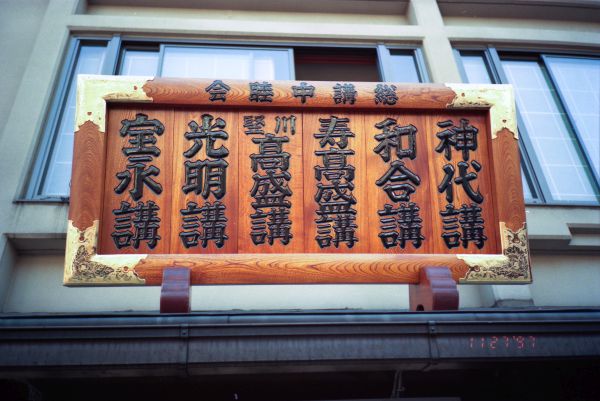 総講中睦会
神代講
和合講
寿高盛講
竪川高盛講
光明講
宝永講
11 27 '97